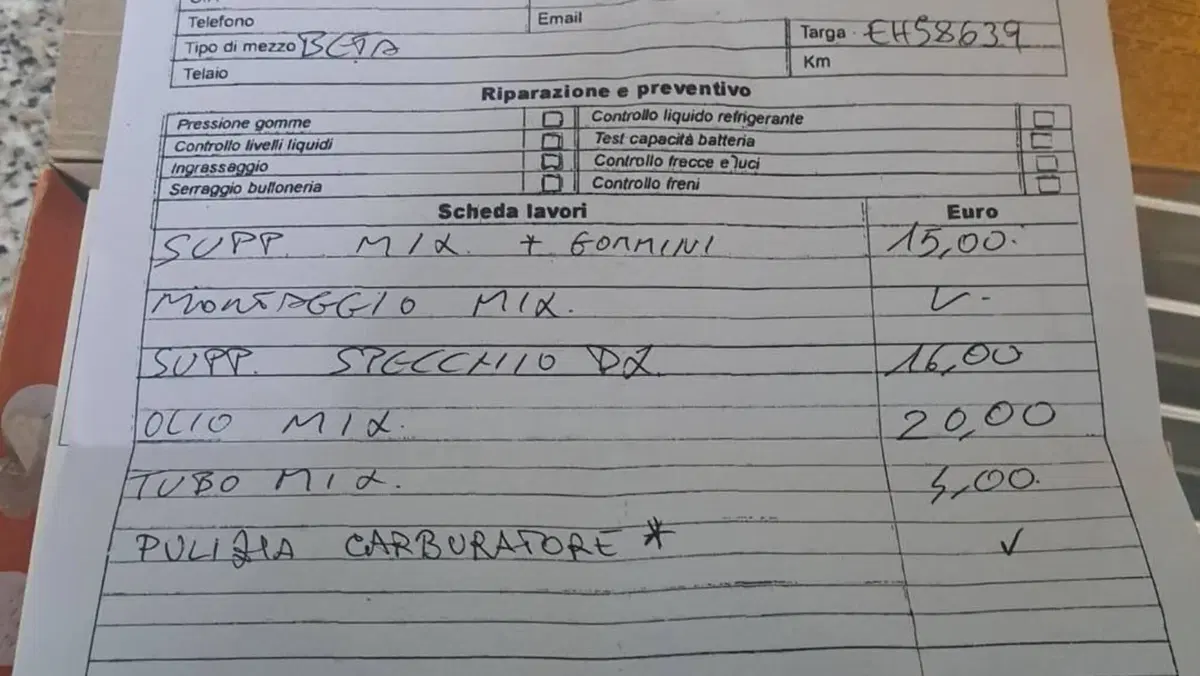 Telefono
Email
Tipo di mezzo BETA
Targa EH58639
Telaio
Km
Riparazione e preventivo
Pressione gomme
Controllo liquido refrigerante
Controllo livelli liquidi
Test capacità batteria
Ingrassaggio
Controllo frecce e luci
Serraggio bulloneria
Controllo freni
Scheda lavori Euro
SUPP. MIX. + GOMMINI 15,00.
MONTAGGIO MIX. -
SUPP. SPECCHIO DX. 16,00
OLIO MIX. 20,00
TUBO MIX. ,00.
PULIZIA CARBURATORE * ✓